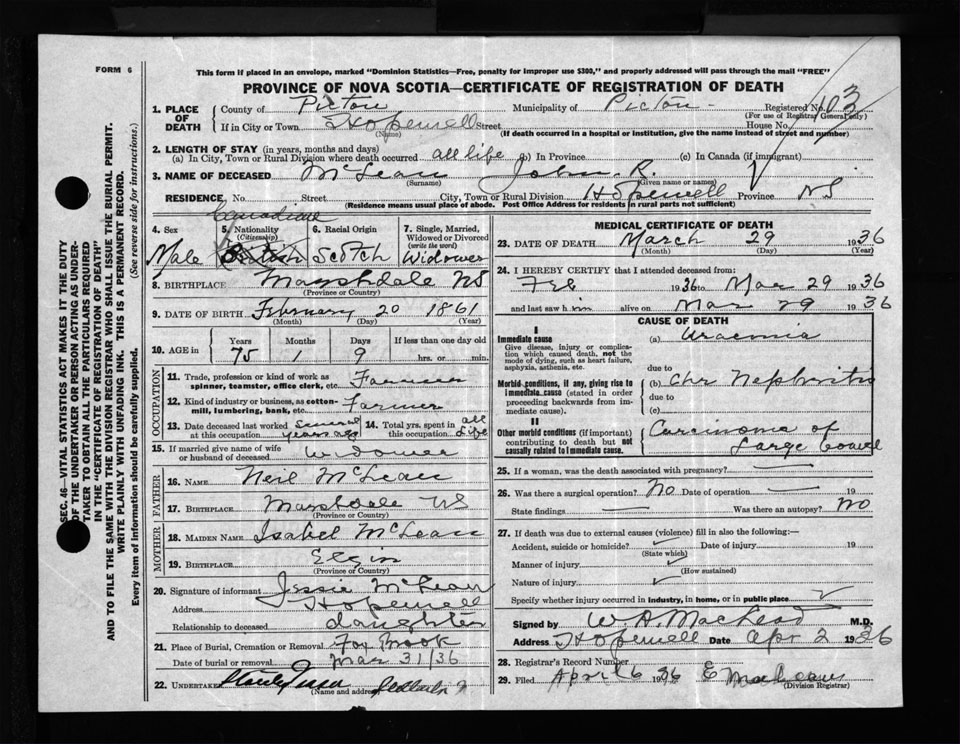 FORM 6
This form if placed in an envelope, marked "Dominion Statistics—Free, penalty for improper use $300," and properly addressed will pass through the mail "FREE"
PROVINCE OF NOVA SCOTIA—CERTIFICATE OF REGISTRATION OF DEATH
SEC. 46—VITAL STATISTICS ACT MAKES IT THE DUTY
OF THE UNDERTAKER OR PERSON ACTING AS UNDER-
TAKER TO OBTAIN ALL THE PARTICULARS REQUIRED
IN THE "CERTIFICATE OF REGISTRATION OF DEATH"
AND TO FILE THE SAME WITH THE DIVISION REGISTRAR WHO SHALL ISSUE THE BURIAL PERMIT.
WRITE PLAINLY WITH UNFADING INK. THIS IS A PERMANENT RECORD.
Every item of information should be carefully supplied. (See reverse side for instructions.)
1. PLACE OF DEATH County of Pictou Municipality of Pictou Registered No. 103
(For use of Registrar General only)
If in City or Town Hopewell Street House No.
(Name) (If death occurred in a hospital or institution, give the name instead of street and number)
2. LENGTH OF STAY (in years, months and days)
(a) In City, Town or Rural Division where death occurred all life (b) In Province (c) In Canada (if immigrant)
3. NAME OF DECEASED McLean John R.
(Surname) (Given name or names)
RESIDENCE, No. Street City, Town or Rural Division Hopewell Province NS
(Residence means usual place of abode. Post Office Address for residents in rural parts not sufficient)
4. Sex Male
5. Nationality (Citizenship) Canadian British
6. Racial Origin Scotch
7. Single, Married, Widowed or Divorced (write the word) Widower
8. BIRTHPLACE Marshdale NS
(Province or Country)
9. DATE OF BIRTH February 20 1861
(Month) (Day) (Year)
10. AGE in Years 75 Months 1 Days 9 If less than one day old hrs. or min.
OCCUPATION
11. Trade, profession or kind of work as spinner, teamster, office clerk, etc. Farmer
12. Kind of industry or business, as cotton-mill, lumbering, bank, etc. Farmer
13. Date deceased last worked at this occupation Several years ago 14. Total yrs. spent in this occupation all life
15. If married give name of wife or husband of deceased widower
FATHER
16. NAME Neil McLean
17. BIRTHPLACE Marshdale NS
(Province or Country)
MOTHER
18. MAIDEN NAME Isabel McLean
19. BIRTHPLACE Elgin
(Province or Country)
20. Signature of informant Jessie McLean
Address Hopewell
Relationship to deceased daughter
21. Place of Burial, Cremation or Removal Fox Brook
Date of burial or removal Mar 31/36
22. UNDERTAKER
(Name and address)
MEDICAL CERTIFICATE OF DEATH
23. DATE OF DEATH March 29 1936
(Month) (Day) (Year)
24. I HEREBY CERTIFY that I attended deceased from
Feb 1936 to Mar 29 1936
and last saw him alive on Mar 29 1936
CAUSE OF DEATH
I
Immediate cause
Give disease, injury or complication which caused death, not the mode of dying, such as heart failure, asphyxia, asthenia, etc.
(a) Uraemia
due to
Morbid conditions, if any, giving rise to immediate cause (stated in order proceeding backwards from immediate cause).
(b) Chr Nephritis
due to
(c)
II
Other morbid conditions (if important) contributing to death but not causally related to immediate cause.
Carcinoma of
Large bowel
25. If a woman, was the death associated with pregnancy?
26. Was there a surgical operation? No Date of operation 19
State findings Was there an autopsy? No
27. If death was due to external causes (violence) fill in also the following:—
Accident, suicide or homicide? Date of injury 19
(State which)
Manner of injury
(How sustained)
Nature of injury
Specify whether injury occurred in industry, in home, or in public place
Signed by W. A. MacLeod M.D.
Address Hopewell Date Apr 2 1936
28. Registrar's Record Number
29. Filed April 6 1936
(Division Registrar)